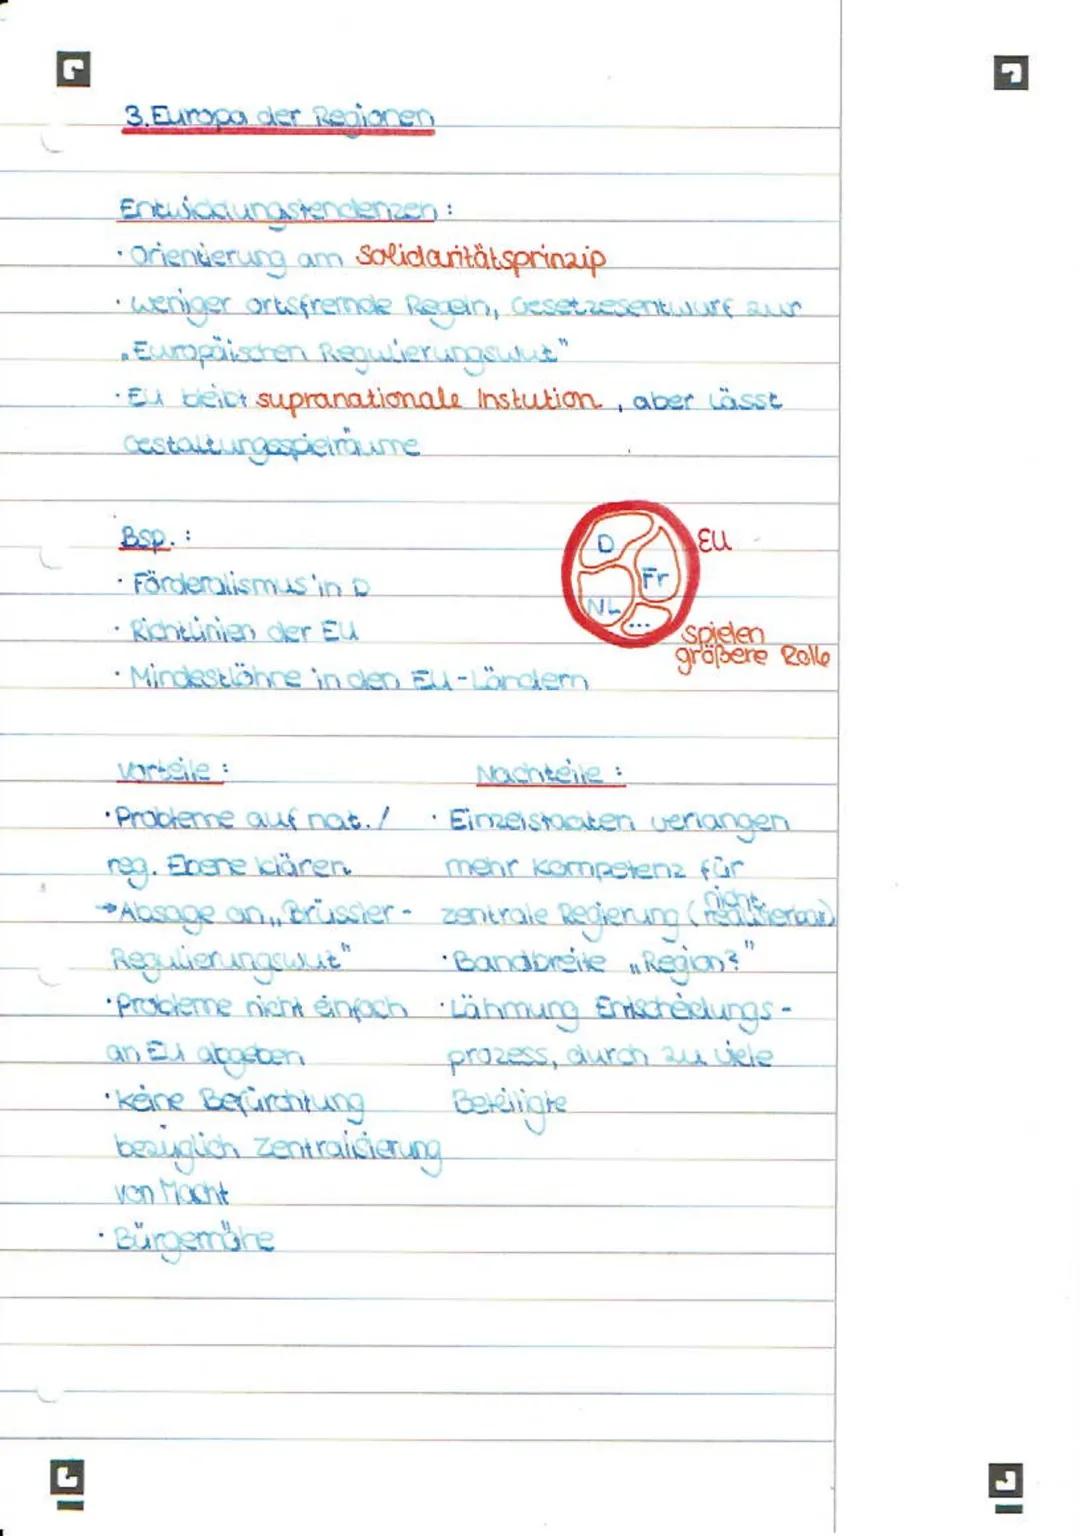 3. Europa der Regionen
Entwicklungstendenzen :
· Orientierung am Solidaritätsprinzip
· weniger ortsfremde Regeln, Gesetzesentwurf zur
„Europäischen Regulierungswut"
· EU bleibt supranationale Instution, aber lässt
Gestaltungsspielräume
Bsp. :
· Förderalismus in D
· Richtlinien der EU
· Mindestlöhne in den EU-Ländern
D
Fr
NL
...
EU
spielen
größere Rolle
Vorteile :
· Probleme auf nat. /
reg. Ebene klären
→ Absage an „Brüssler-
Regulierungswut"
· Probleme nicht einfach
an EU abgeben
· keine Befürchtung
bezüglich Zentralisierung
von Macht
· Bürgernähe
Nachteile :
· Einzelstaaten verlangen
mehr Kompetenz für
zentrale Regierung (nicht realisierbar)
· Bandbreite „Region?"
· Lähmung Entscheidungs-
prozess, durch zu viele
Beteiligte